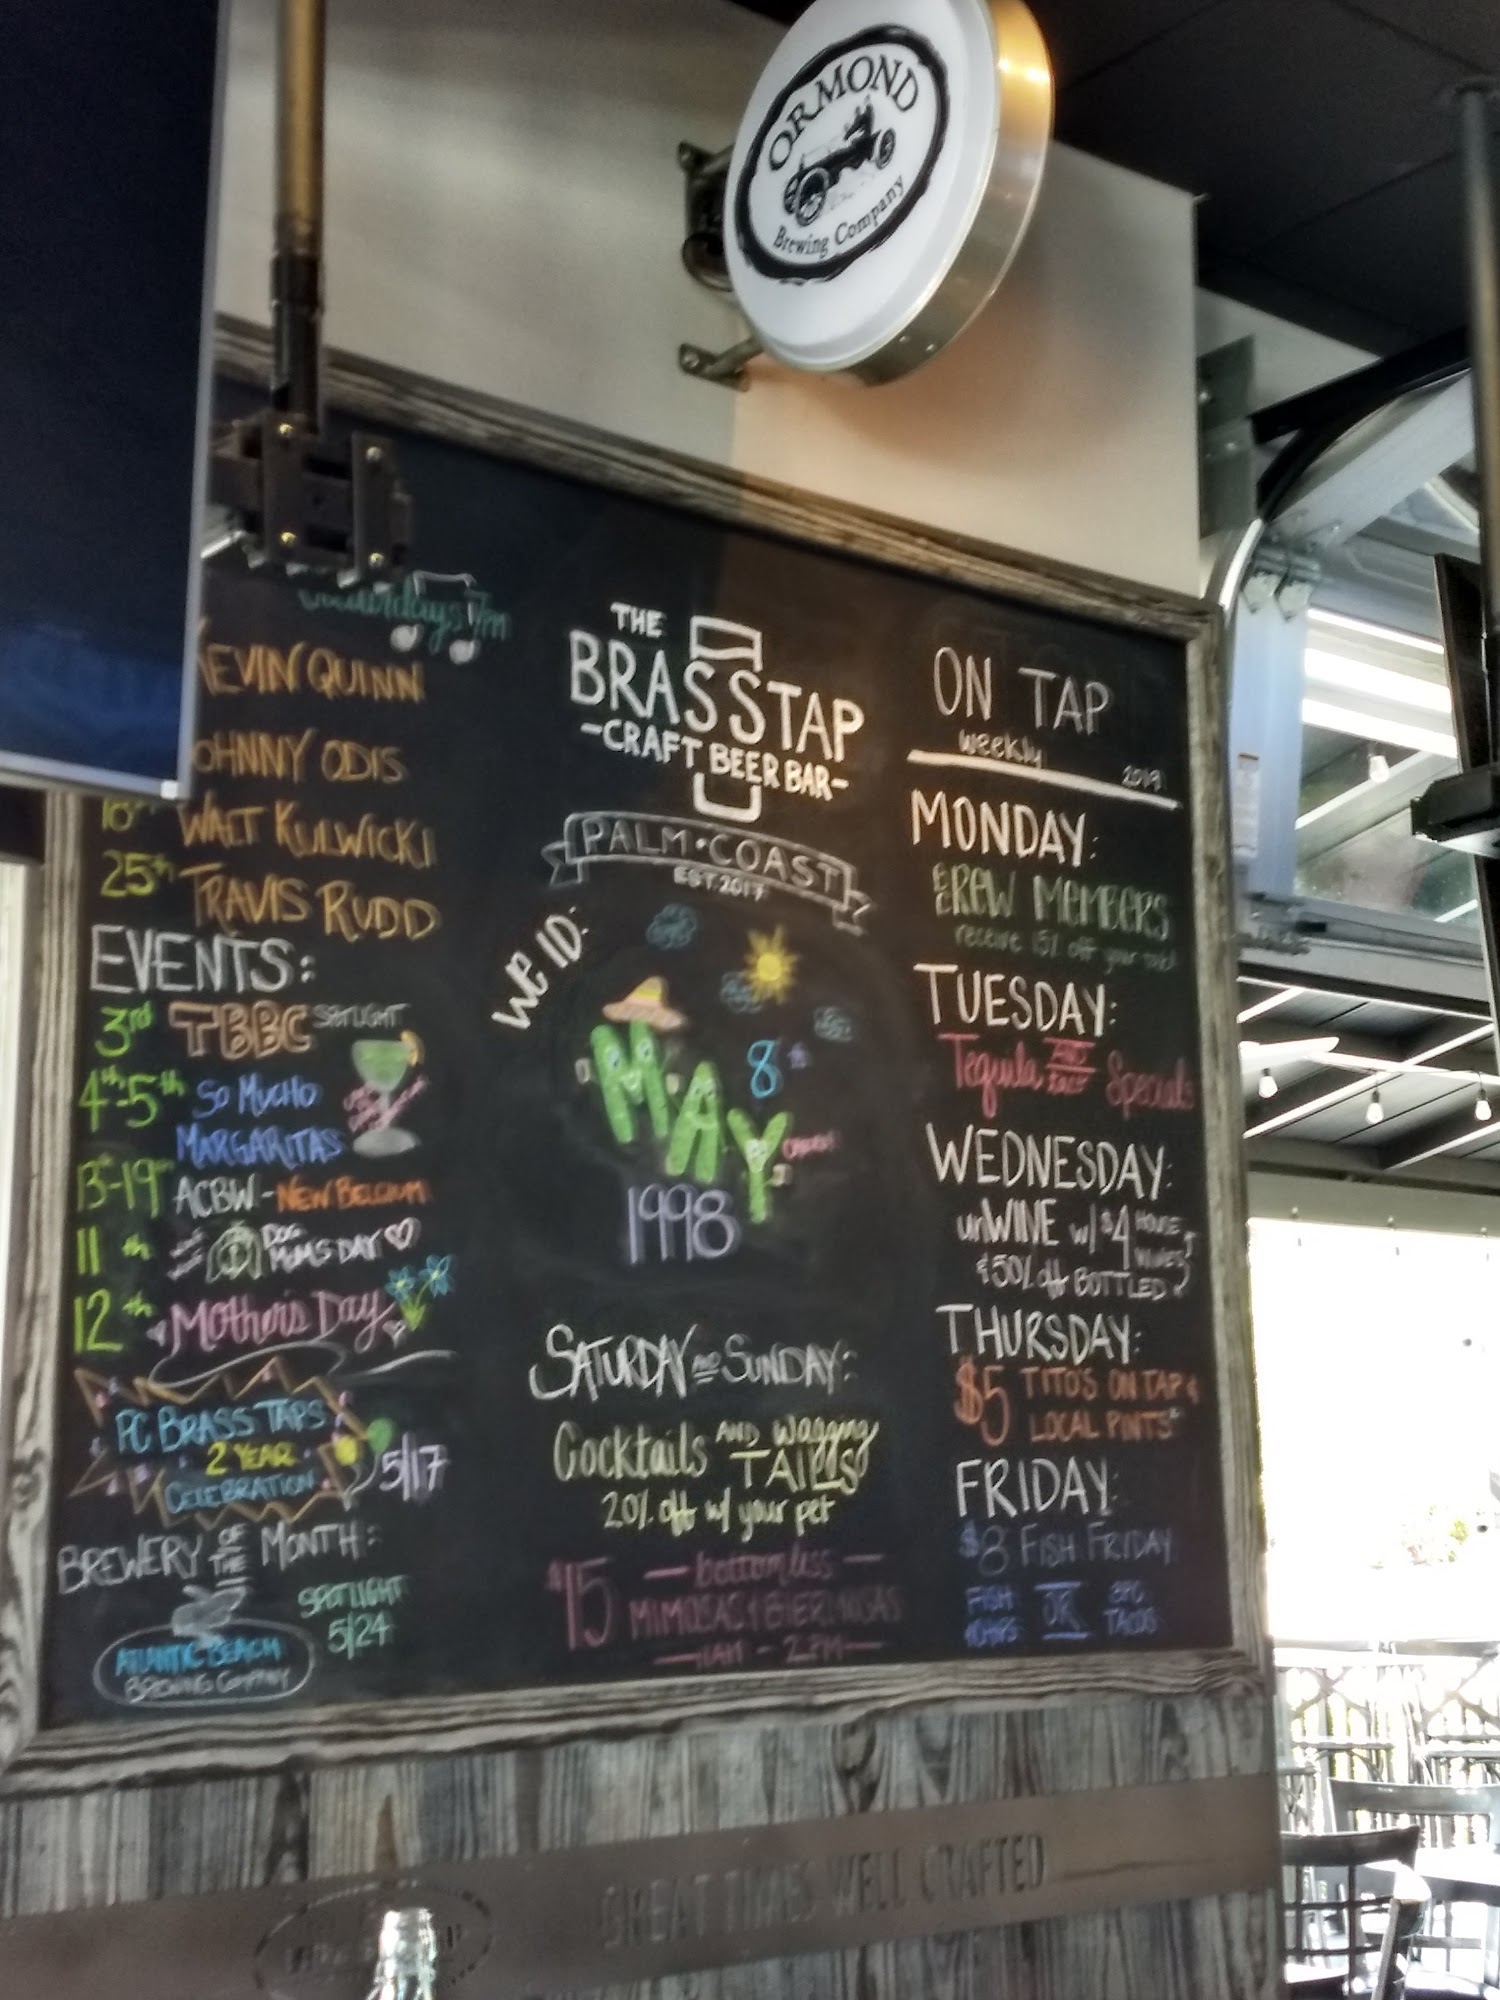 ORMOND
Brewing Company
7pm
KEVIN QUINN
JOHNNY ODIS
18th WALT KULWICKI
25th TRAVIS RUDD
EVENTS:
3rd TBBC SPOTLIGHT
4th-5th SO MUCHO
MARGARITAS
13-19th ACBW - NEW BELGIUM
11th DOG
MOMS DAY
12th Mother's Day
PC BRASS TAPS
2 YEAR
CELEBRATION
5/17
BREWERY OF THE MONTH:
SPOTLIGHT
5/24
ATLANTIC BEACH
BREWING COMPANY
THE
BRASS TAP
-CRAFT BEER BAR-
PALM • COAST
EST. 2017
WE ID:
MAY
8th
1998
SATURDAY AND SUNDAY:
Cocktails AND wagging
TAILS
20% off w/ your pet
$15 bottomless
MIMOSAS & BIERMOSAS
11AM - 2PM
ON TAP
weekly
2019
MONDAY:
BREW MEMBERS
receive 15% off your tab!
TUESDAY:
Tequila AND Specials
WEDNESDAY:
unWINE w/ $4 HOUSE
WINES
& 50% off BOTTLED
THURSDAY:
$5 TITO'S ON TAP &
LOCAL PINTS
FRIDAY:
$8 FISH FRIDAY
FISH OR
TACOS
GREAT TIMES WELL CRAFTED